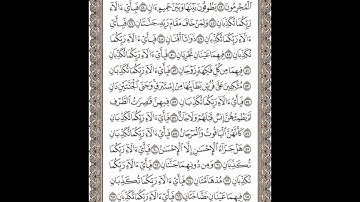 ٱلْمُجْرِمُونَ ۝٤٣ يَطُوفُونَ بَيْنَهَا وَبَيْنَ حَمِيمٍ ءَانٍ ۝٤٤ فَبِأَىِّ ءَالَآءِ
رَبِّكُمَا تُكَذِّبَانِ ۝٤٥ وَلِمَنْ خَافَ مَقَامَ رَبِّهِۦ جَنَّتَانِ ۝٤٦ فَبِأَىِّ
ءَالَآءِ رَبِّكُمَا تُكَذِّبَانِ ۝٤٧ ذَوَاتَآ أَفْنَانٍ ۝٤٨ فَبِأَىِّ ءَالَآءِ رَبِّكُمَا
تُكَذِّبَانِ ۝٤٩ فِيهِمَا عَيْنَانِ تَجْرِيَانِ ۝٥٠ فَبِأَىِّ ءَالَآءِ رَبِّكُمَا تُكَذِّبَانِ
۝٥١ فِيهِمَا مِن كُلِّ فَٰكِهَةٍ زَوْجَانِ ۝٥٢ فَبِأَىِّ ءَالَآءِ رَبِّكُمَا تُكَذِّبَانِ
۝٥٣ مُتَّكِـِٔينَ عَلَىٰ فُرُشٍۭ بَطَآئِنُهَا مِنْ إِسْتَبْرَقٍ وَجَنَى ٱلْجَنَّتَيْنِ دَانٍ
۝٥٤ فَبِأَىِّ ءَالَآءِ رَبِّكُمَا تُكَذِّبَانِ ۝٥٥ فِيهِنَّ قَٰصِرَٰتُ ٱلطَّرْفِ
لَمْ يَطْمِثْهُنَّ إِنسٌ قَبْلَهُمْ وَلَا جَآنٌّ ۝٥٦ فَبِأَىِّ ءَالَآءِ رَبِّكُمَا تُكَذِّبَانِ
۝٥٧ كَأَنَّهُنَّ ٱلْيَاقُوتُ وَٱلْمَرْجَانُ ۝٥٨ فَبِأَىِّ ءَالَآءِ رَبِّكُمَا تُكَذِّبَانِ
۝٥٩ هَلْ جَزَآءُ ٱلْإِحْسَٰنِ إِلَّا ٱلْإِحْسَٰنُ ۝٦٠ فَبِأَىِّ ءَالَآءِ رَبِّكُمَا
تُكَذِّبَانِ ۝٦١ وَمِن دُونِهِمَا جَنَّتَانِ ۝٦٢ فَبِأَىِّ ءَالَآءِ رَبِّكُمَا
تُكَذِّبَانِ ۝٦٣ مُدْهَآمَّتَانِ ۝٦٤ فَبِأَىِّ ءَالَآءِ رَبِّكُمَا تُكَذِّبَانِ
۝٦٥ فِيهِمَا عَيْنَانِ نَضَّاخَتَانِ ۝٦٦ فَبِأَىِّ ءَالَآءِ رَبِّكُمَا تُكَذِّبَانِ